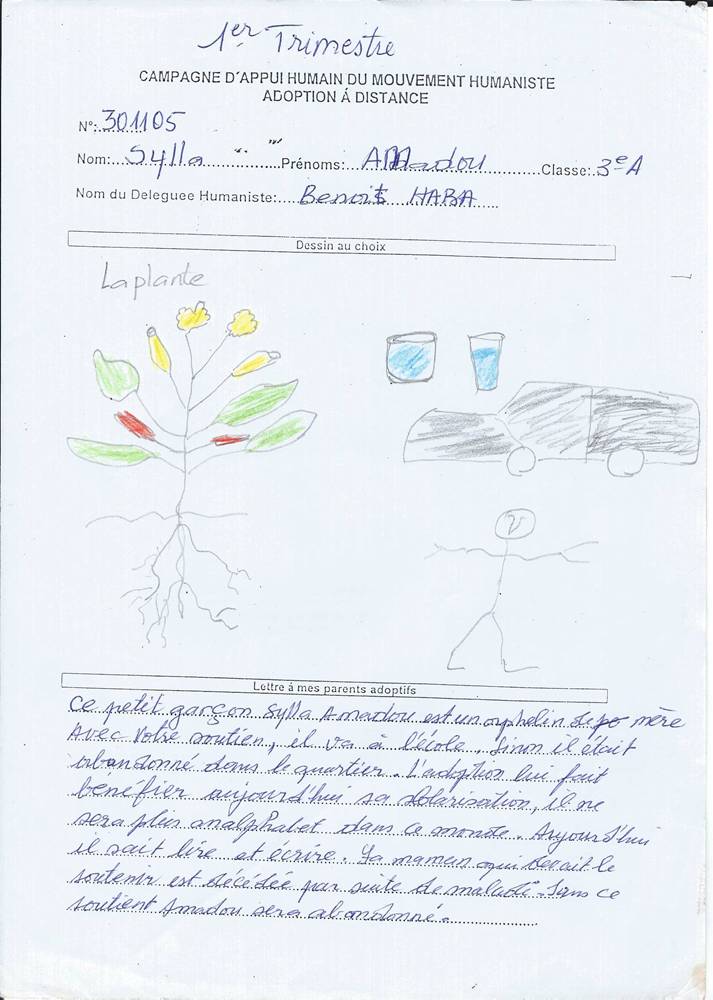 1er Trimestre
CAMPAGNE D´APPUI HUMAIN DU MOUVEMENT HUMANISTE
ADOPTION Á DISTANCE
N°:301105
Nom: Sylla Prénoms: AMadou Classe: 3e A
Nom du Deleguee Humaniste: Benoit HABA
Dessin au choix
La plante
Lettre á mes parents adoptifs
Ce petit garçon Sylla Amadou est un orphelin de mère
Avec Votre soutien, il va à l'école. Sinon il était
abandonné dans le quartier. L'adoption lui fait
bénéfier aujourd'hui sa scolarisation, il ne
sera plus analphabet dans ce monde. Aujourd'hui
il sait lire et écrire. Sa maman qui devait le
soutenir est décédée par suite de maladie. Sans ce
soutient Amadou sera abandonné.